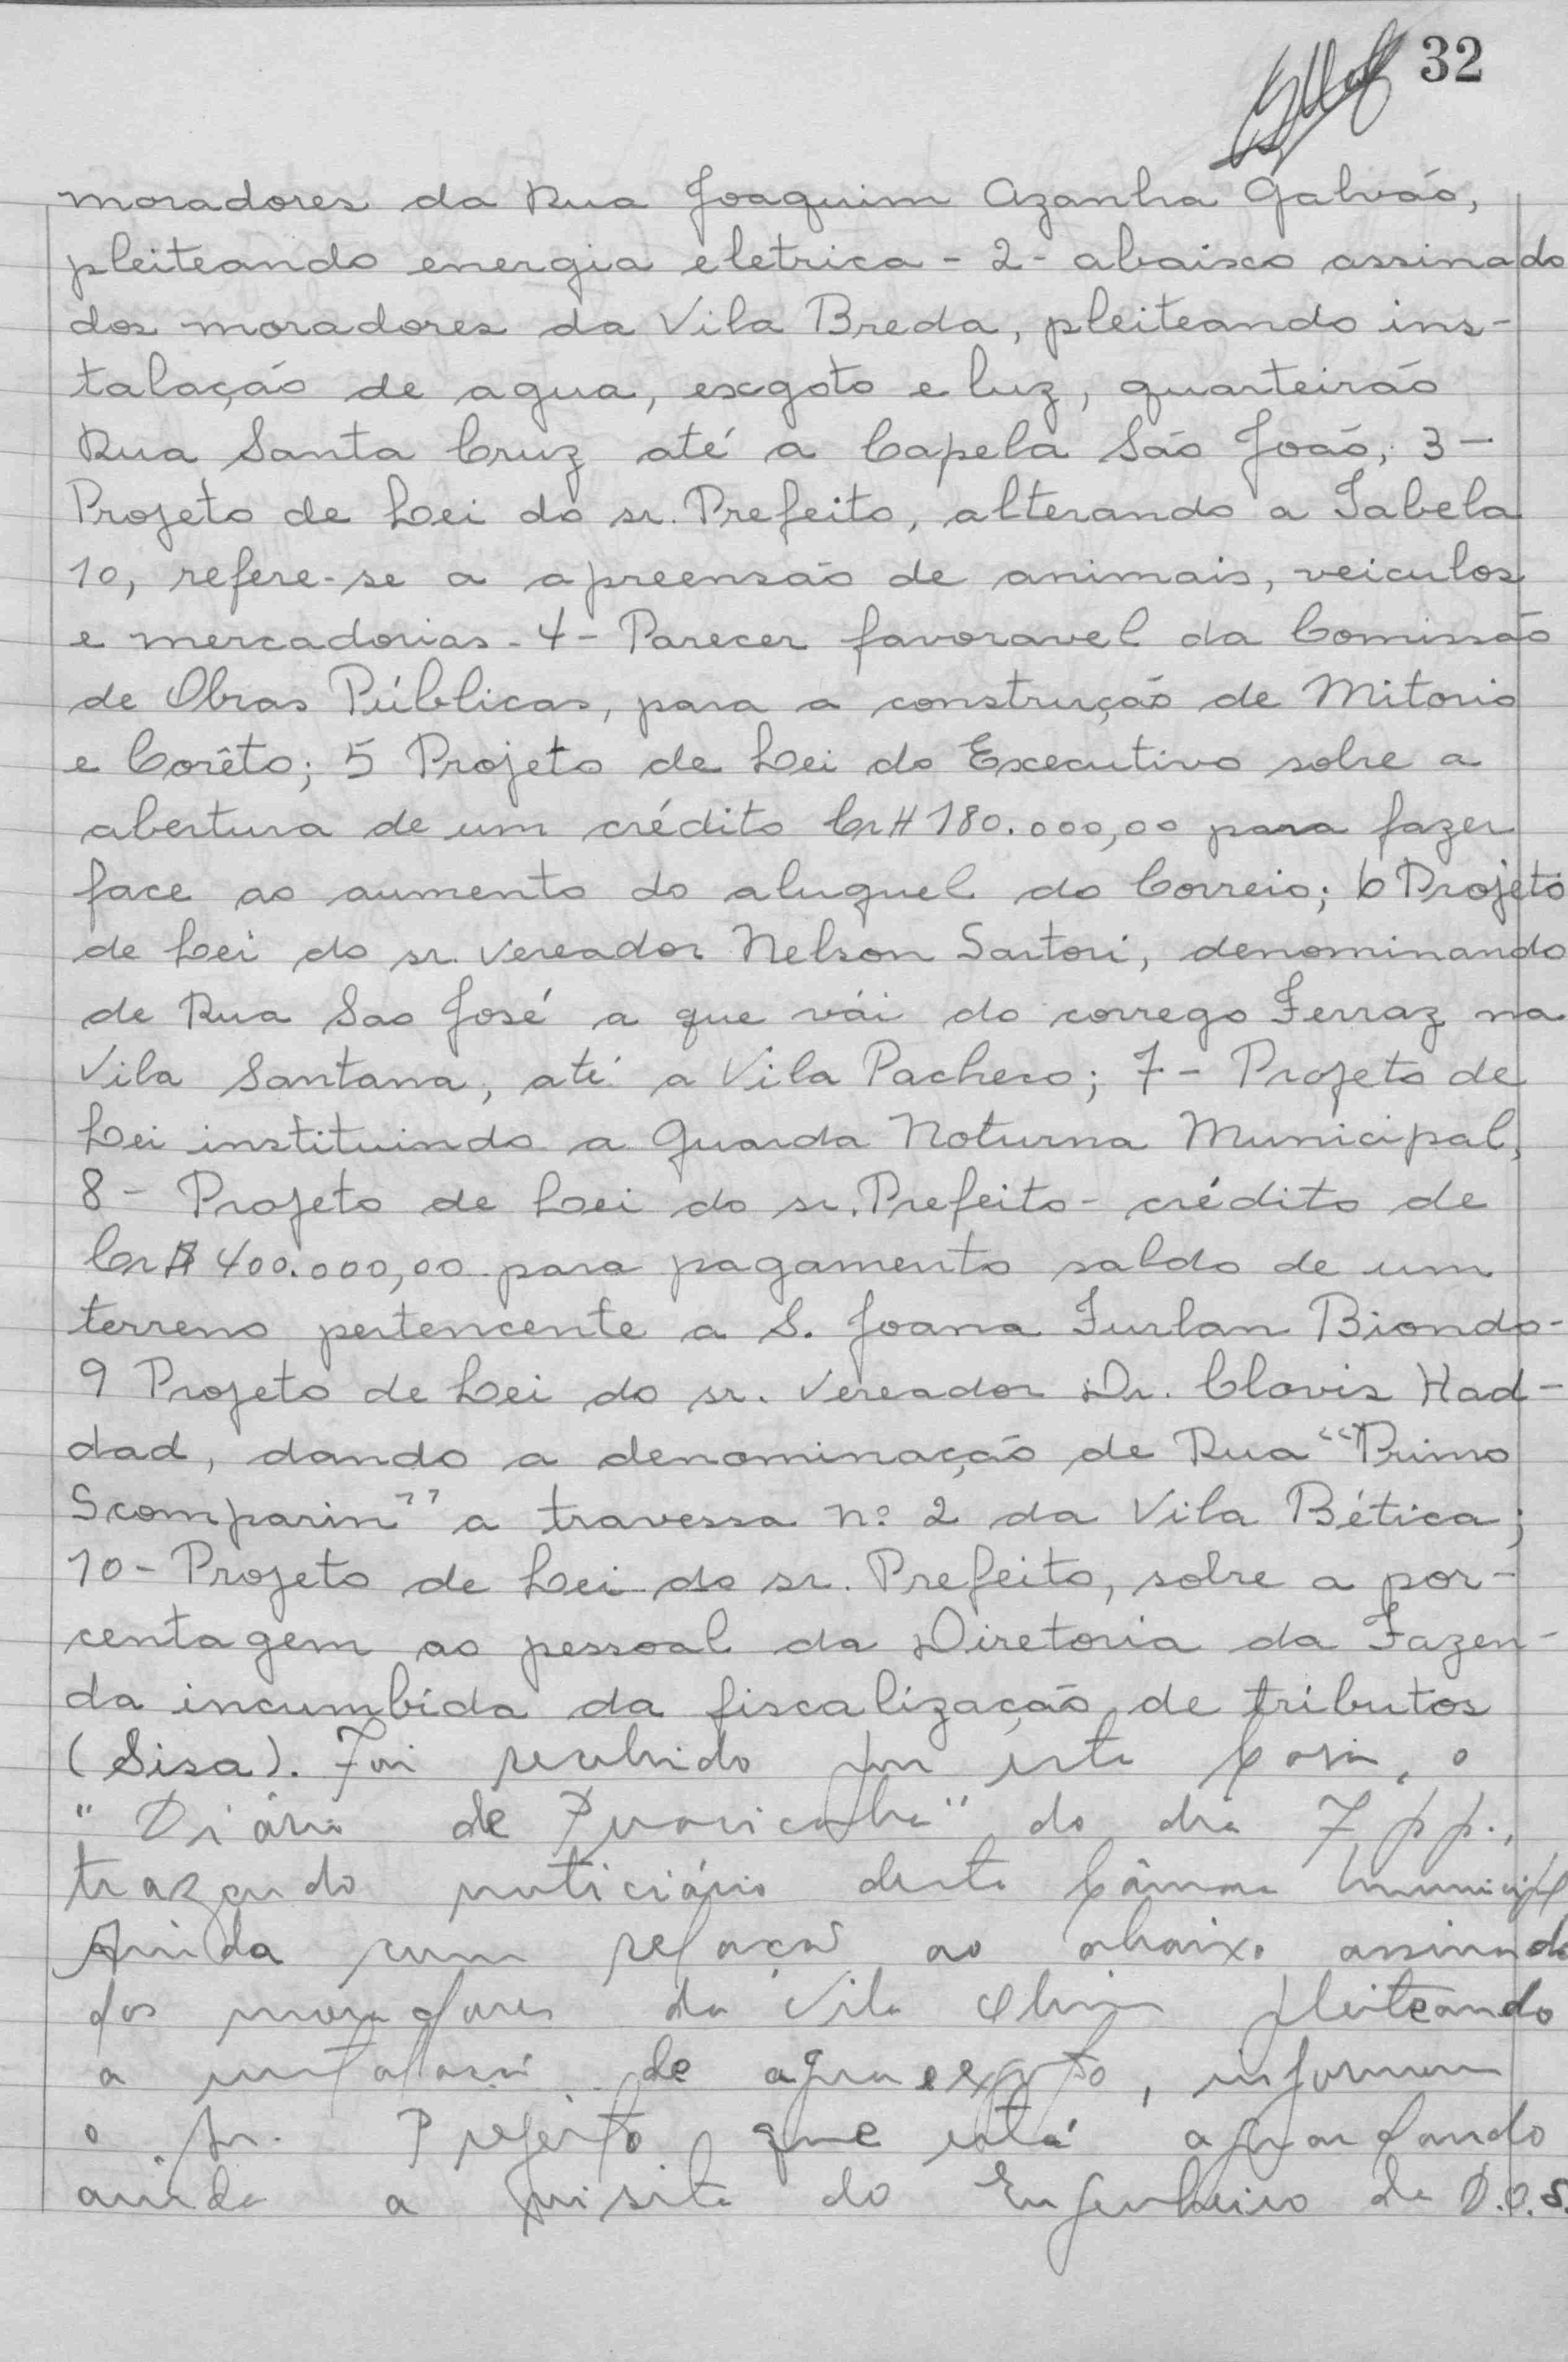 32
moradores da Rua Joaquim Azanha Galvão,
pleiteando energia eletrica - 2 - abaixo assinado
dos moradores da Vila Breda, pleiteando ins-
talação de agua, exgoto e luz, quarteirão
Rua Santa Cruz até a Capela São João; 3 -
Projeto de Lei do sr. Prefeito, alterando a Tabela
10, refere-se a apreensão de animais, veiculos
e mercadorias - 4 - Parecer favoravel da Comissão
de Obras Públicas, para a construção de Mitorio
e Corêto; 5 Projeto de Lei do Executivo sobre a
abertura de um crédito Cr$ 180.000,00 para fazer
face ao aumento do aluguel do Correio; 6 Projeto
de Lei do sr. vereador Nelson Sartori, denominando
de Rua Sao José a que vái do corrego Ferraz na
Vila Santana, até a Vila Pacheco; 7 - Projeto de
Lei instituindo a Guarda Noturna Municipal,
8 - Projeto de Lei do sr. Prefeito - crédito de
Cr$ 400.000,00 para pagamento saldo de um
terreno pertencente a S. Joana Furlan Biondo -
9 Projeto de Lei do sr. Vereador Dr. Clovis Had-
dad, dando a denominação de Rua "Primo
Scomparin" a travessa nº 2 da Vila Bética;
10 - Projeto de Lei do sr. Prefeito, sobre a por-
centagem ao pessoal da Diretoria da Fazen-
da incumbida da fiscalização de tributos
(Sisa). Foi recebido por esta Casa, o
"Diário de Piracicaba" do dia 7 p.p.,
trazendo noticiário desta Câmara Municipal
Ainda com relação ao abaixo assinado
dos moradores da Vila pleiteando
a instalação de agua e exgoto, informou
o sr. Prefeito que está aguardando
ainda a visita do Engenheiro da D.O.S.